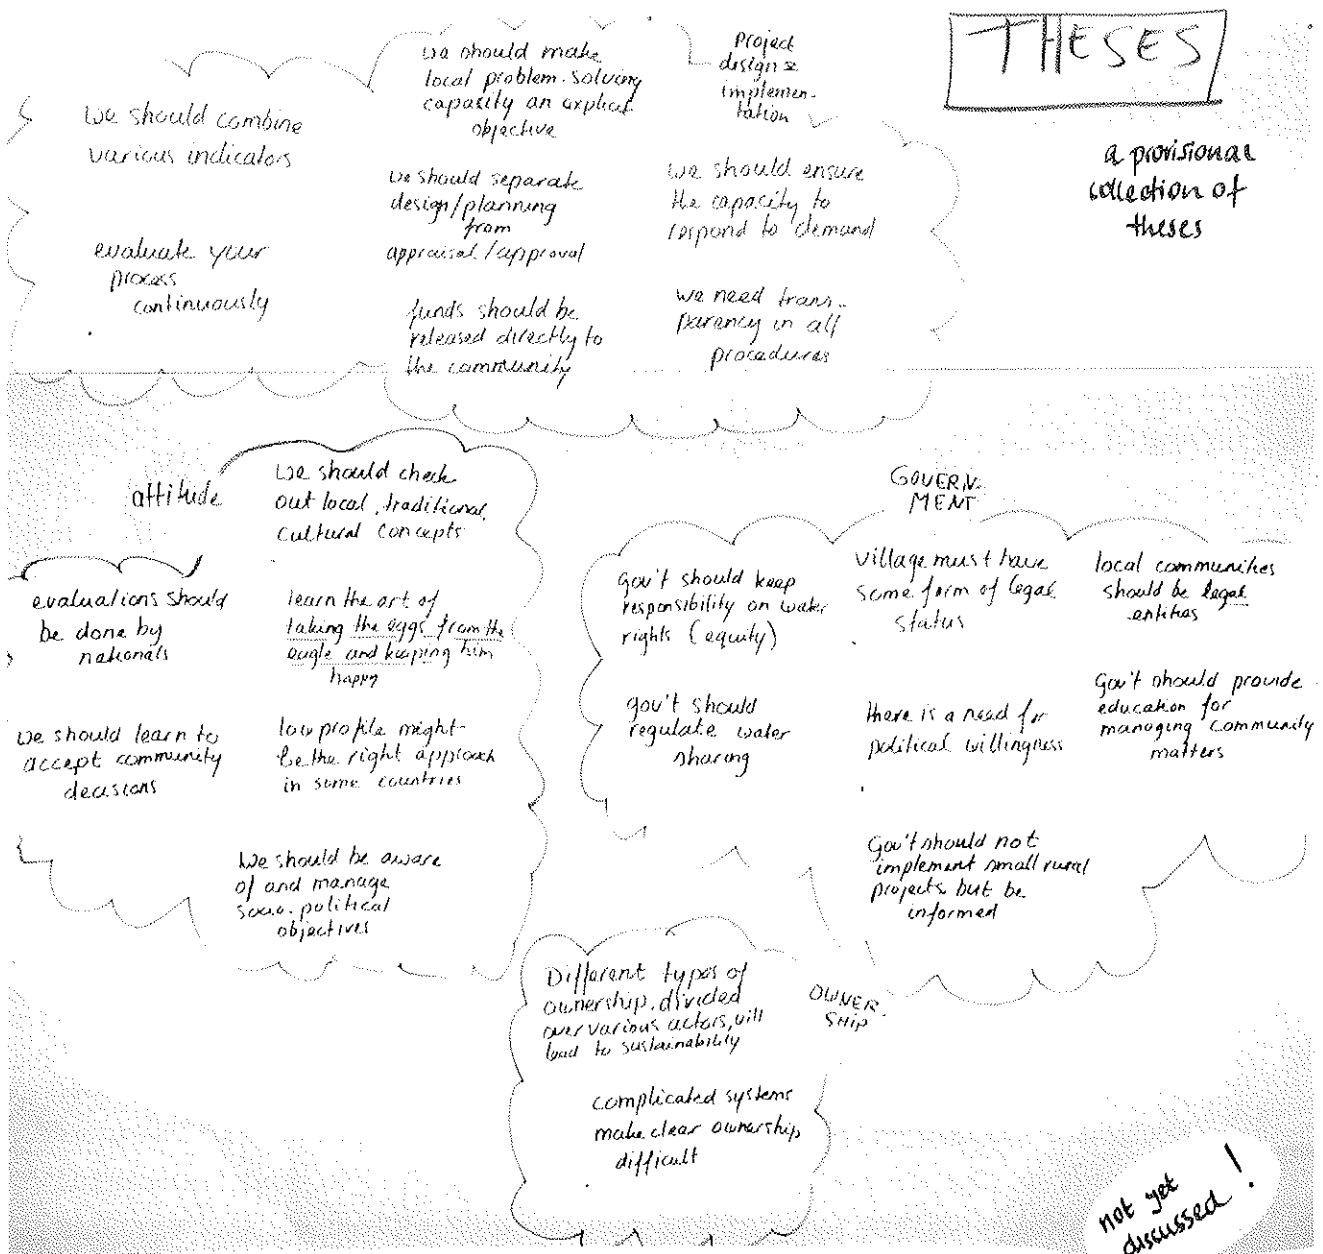 THESES
a provisional
collection of
theses
Project
design &
implemen-
tation
we should combine
various indicators
evaluate your
process
continuously
we should make
local problem-solving
capacity an explicit
objective
we should separate
design/planning
from
appraisal/approval
funds should be
released directly to
the community
we should ensure
the capacity to
respond to demand
we need trans-
parency in all
procedures
attitude
we should check
out local, traditional,
cultural concepts
evaluations should
be done by
nationals
learn the art of
taking the eggs from the
eagle and keeping him
happy
we should learn to
accept community
decisions
low profile might
be the right approach
in some countries
We should be aware
of and manage
socio-political
objectives
GOVERN-
MENT
gov't should keep
responsibility on water
rights (equity)
village must have
some form of legal
status
local communities
should be legal
entities
gov't should
regulate water
sharing
there is a need for
political willingness
Gov't should provide
education for
managing community
matters
Gov't should not
implement small rural
projects but be
informed
OWNER-
SHIP
Different types of
ownership, divided
over various actors, will
lead to sustainability
complicated systems
make clear ownership
difficult
not yet
discussed!